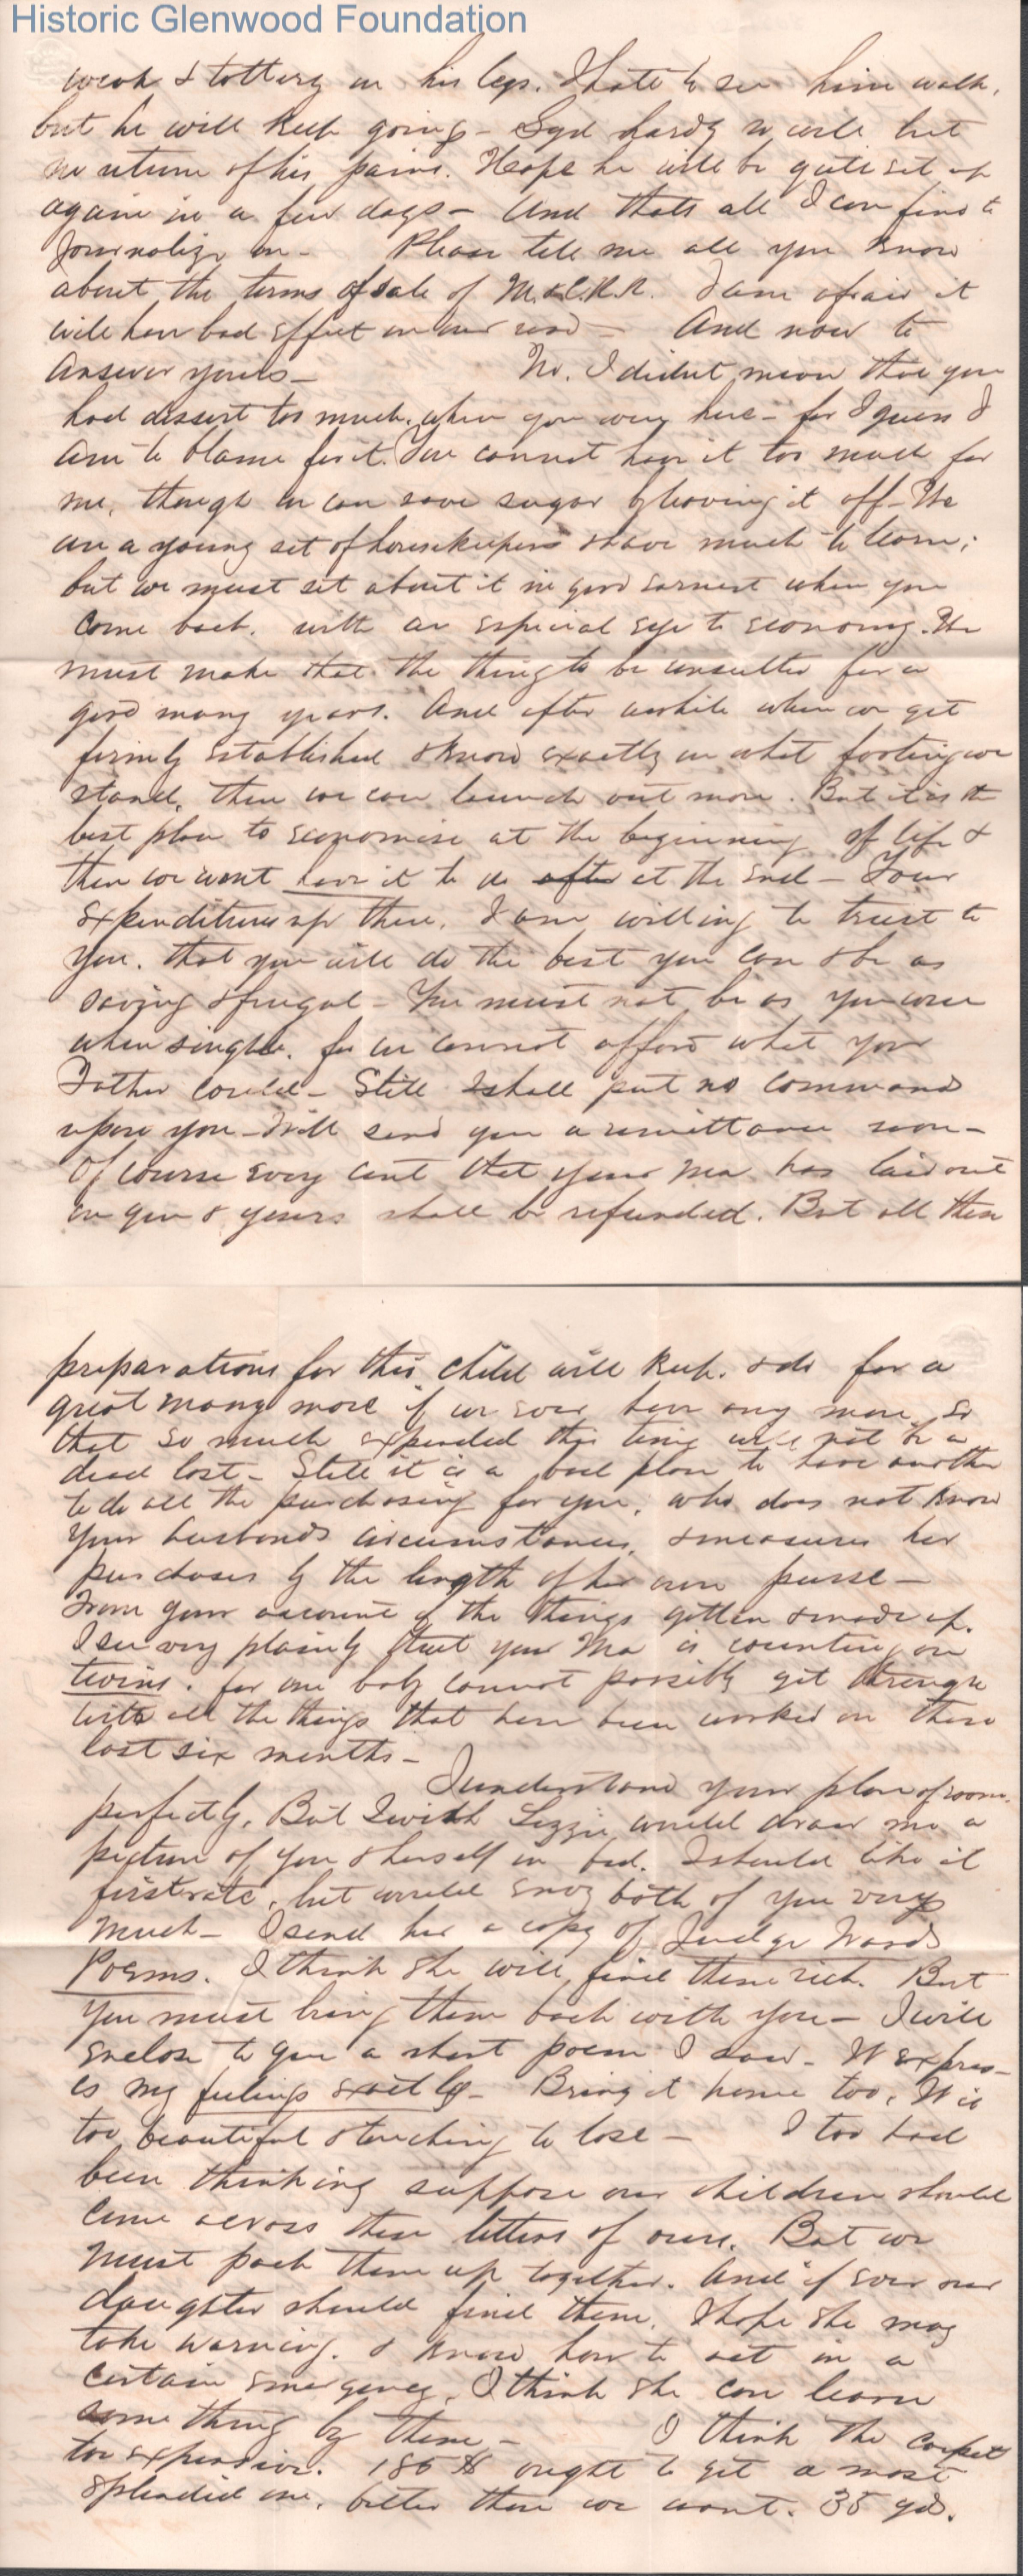 Historic Glenwood Foundation
weak & tottery on his legs. I hate to see him walk,
but he will keep going - Syd hardy is well but
no return of his pains. Hope he will be quite set up
again in a few days - And thats all I can find to
Journalize on - Please tell me all you know
about the terms of sale of M. & C. R. R. I am afraid it
will have bad effect on our road - And now to
answer yours -
No. I didnt mean that you
had dessert too much, when you were here - for I guess I
am to blame for it. You cannot have it too much for
me, though we can save sugar by leaving it off - We
are a young set of housekeepers & have much to learn;
but we must set about it in good earnest when you
come back, with an especial eye to economy. We
must make that the thing to be consulted for a
good many years. And after awhile when we get
firmly established & know exactly on what footing we
stand, then we can launch out more. But it is the
best plan to economise at the beginning of life &
then we wont have it to do after at the end - Your
expenditures up there, I am willing to trust to
you, that you will do the best you can & be as
saving & frugal - You must not be as you were
when single, for we cannot afford what your
Father could - Still I shall put no command
upon you - Will send you a remittance soon -
Of course every cent that your Ma has laid out
on you & yours shall be refunded. But all these
preparations for this child will keep, & do for a
great many more if we ever have any more, so
that so much expended this time will not be a
dead lost - Still it is a bad plan to have another
to do all the purchasing for you, who does not know
your husbands circumstances, & measures her
purchases by the length of her own purse -
From your account of the things gotten & made up,
I see very plainly that your Ma is counting on
twins. for one baby cannot possibly get through
with all the things that have been worked on these
last six months -
I understand your plan of room
perfectly. But I wish Lizzie would draw me a
picture of you & herself in bed. I should like it
firstrate, but would envy both of you very
much - I send her a copy of Judge Wards
Poems. I think she will find them rich. But
you must bring them back with you - I will
enclose to you a short poem I saw - It express-
es my feelings exactly - Bring it home too, It is
too beautiful & touching to lose - I too had
been thinking suppose our children should
come across these letters of ours. But we
must pack them up together. And if ever our
daughter should find them, I hope she may
take warning, & know how to act in a
certain emergency, I think she can learn
something by them - I think the carpet
too expensive. 185 $ ought to get a most
splendid one, better than we want. 35 yds.